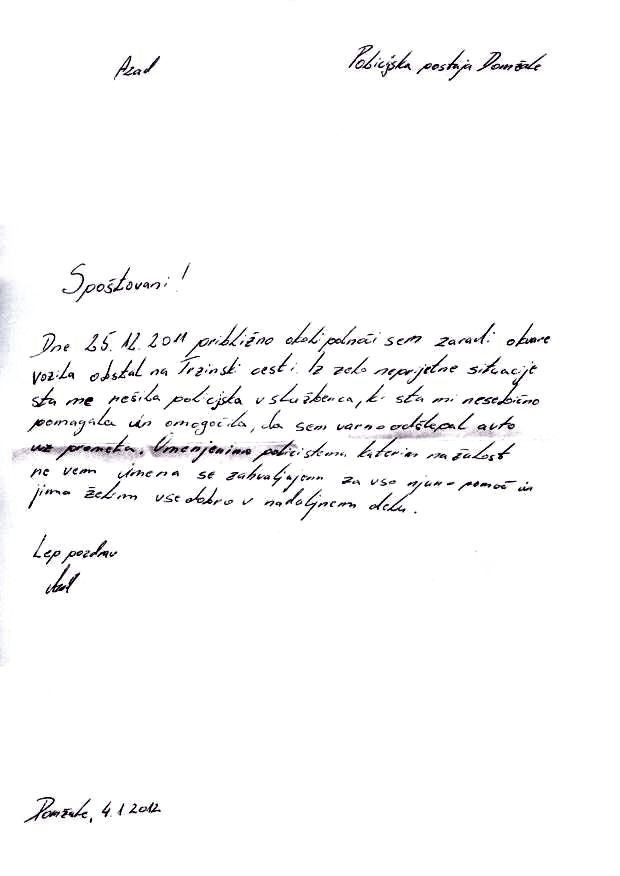 Azad
Policijska postaja Domžale
Spoštovani!
Dne 25.12.2011 približno okoli polnoči sem zaradi okvare
vozila obstal na Trzinski cesti. Iz zelo neprijetne situacije
sta me rešila policijska uslužbenca, ki sta mi nesebično
pomagala in omogočila, da sem varno odšlepal avto
iz prometa. Omenjenima policistoma katerim na žalost
ne vem imena se zahvaljujem za vso njuno pomoč in
jima želim vse dobro v nadaljnem delu.
Lep pozdrav
Azad
Domžale, 4.1.2012